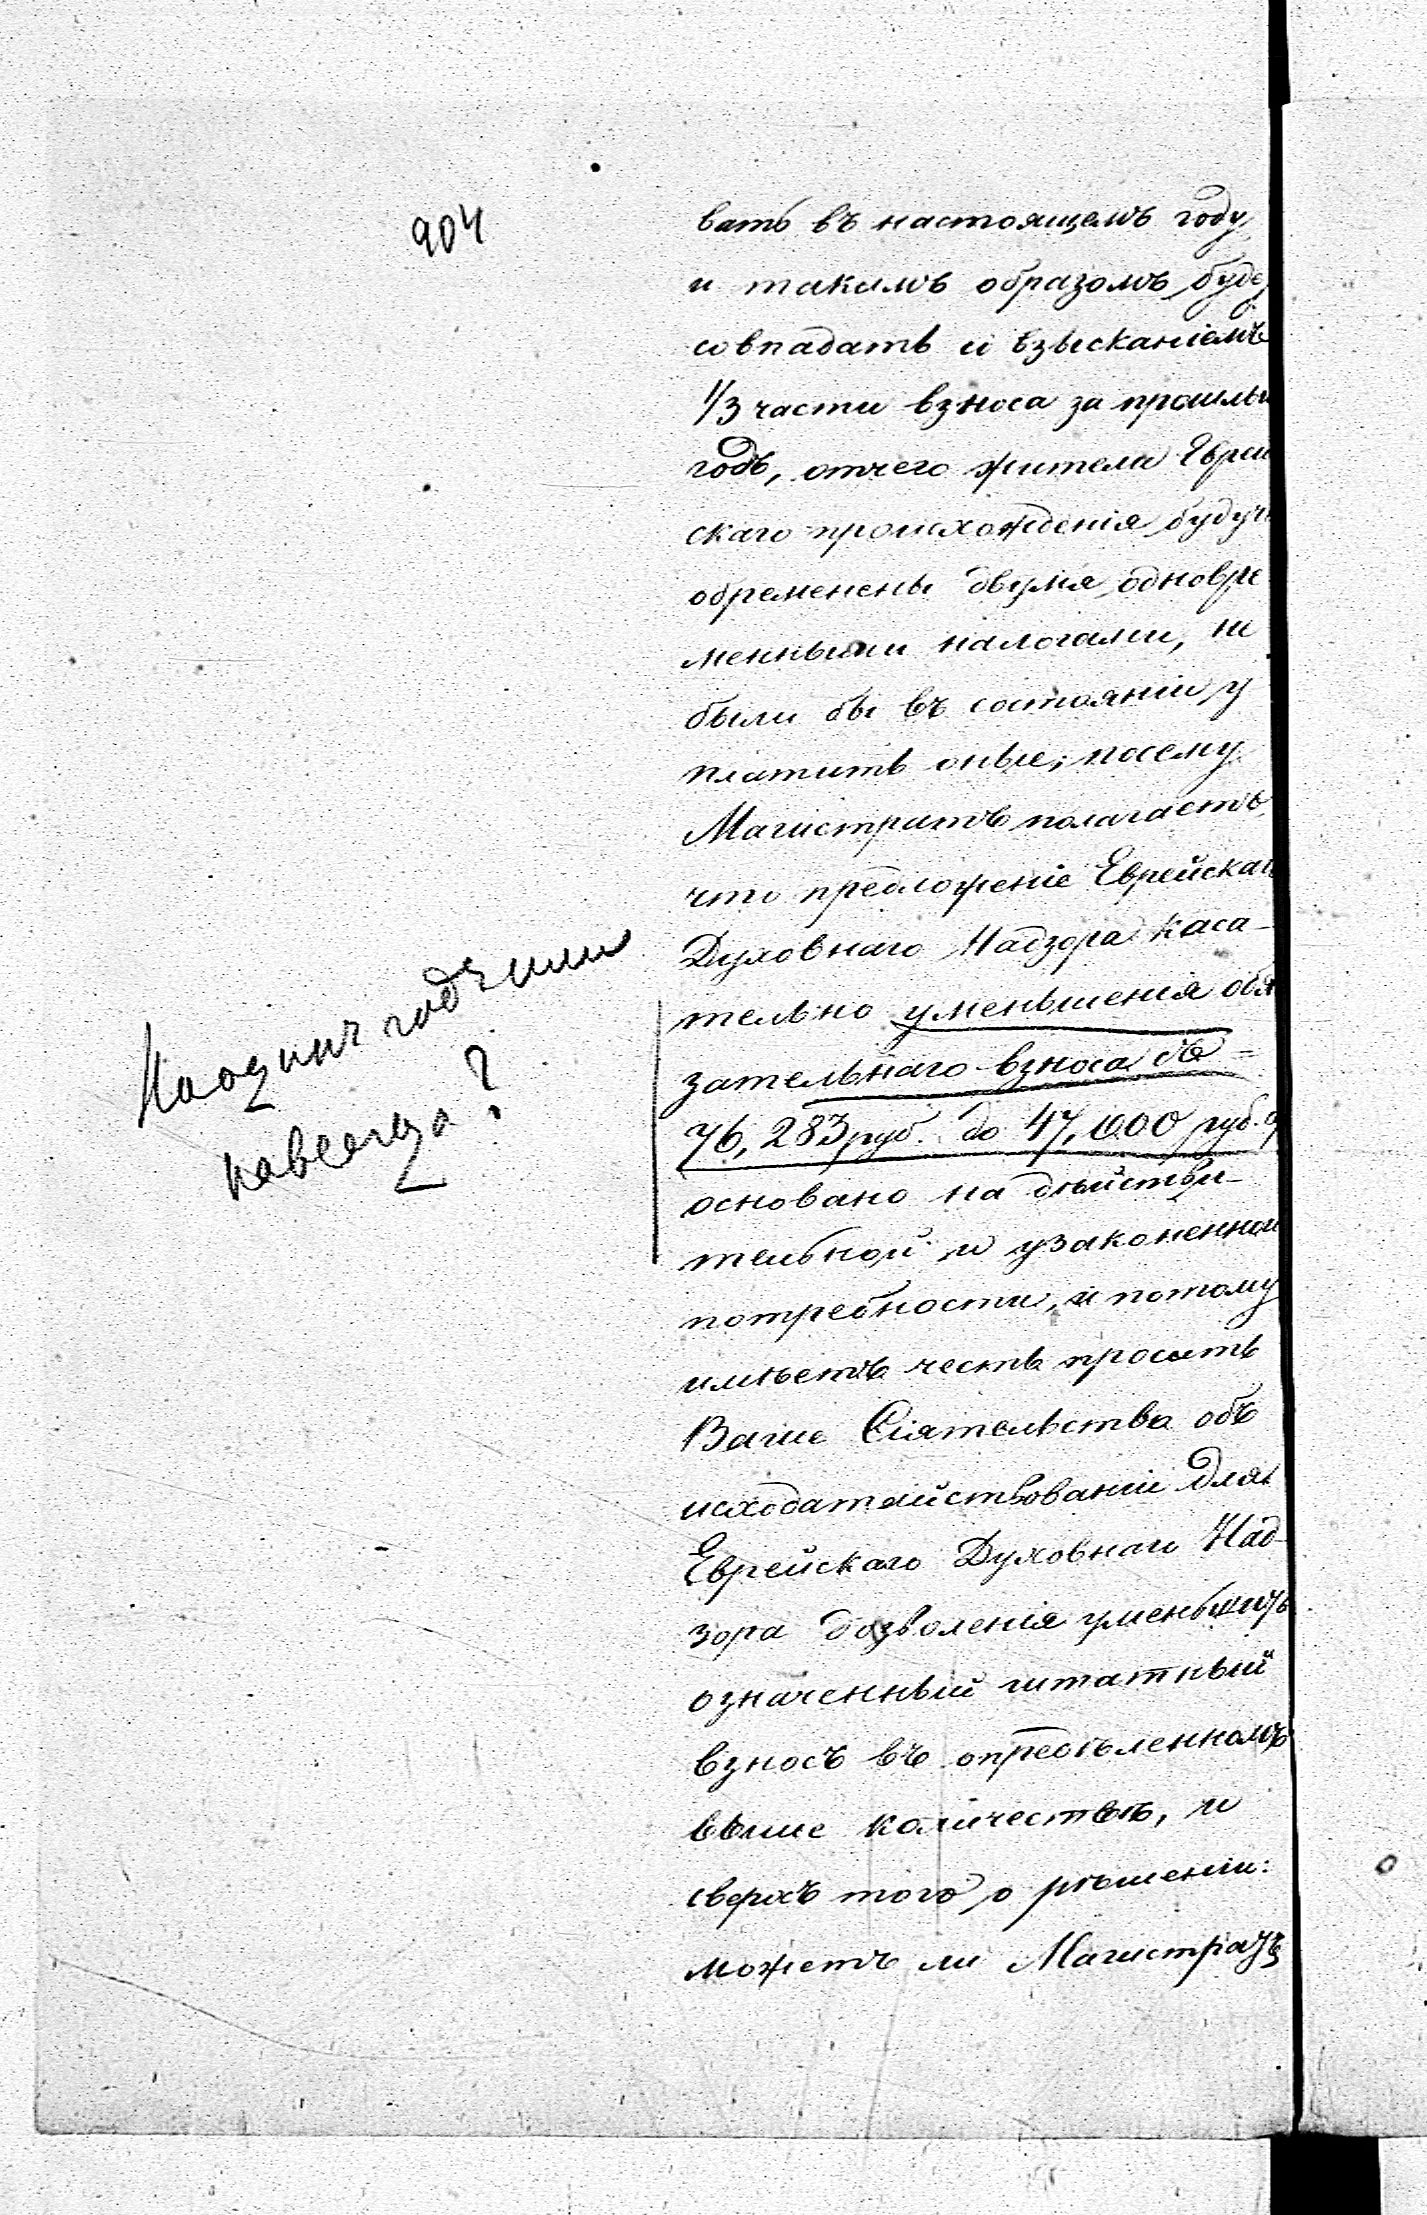 904
вать въ настоящемъ году
и такимъ образомъ буде
совпадать и взысканіемъ
1/3 части взноса за прошлы
годъ, отчего жители Еврей
скаго происхожденія будучи
обременены двумя одновре
менными налогами, не
были бы въ состояніи у
платить оные; посему
Магистратъ полагаетъ
что предложеніе Еврейскаго
Духовнаго Надзора каса-
тельно уменьшенія обя
зательнаго взноса съ
76,283 руб. до 47,000 руб. с
основано на дѣйстви-
тельной и узаконенной
потребности, и потому
имѣетъ честь просить
Ваше Сіятельство объ
исходатайствованіи для
Еврейскаго Духовнаго Над-
зора дозволенія уменьшить
означенный штатный
взносъ въ опредѣленномъ
выше количествѣ, и
сверхъ того о рѣшеніи:
можетъ ли Магистратъ
На одинъ годъ или
навсегда?